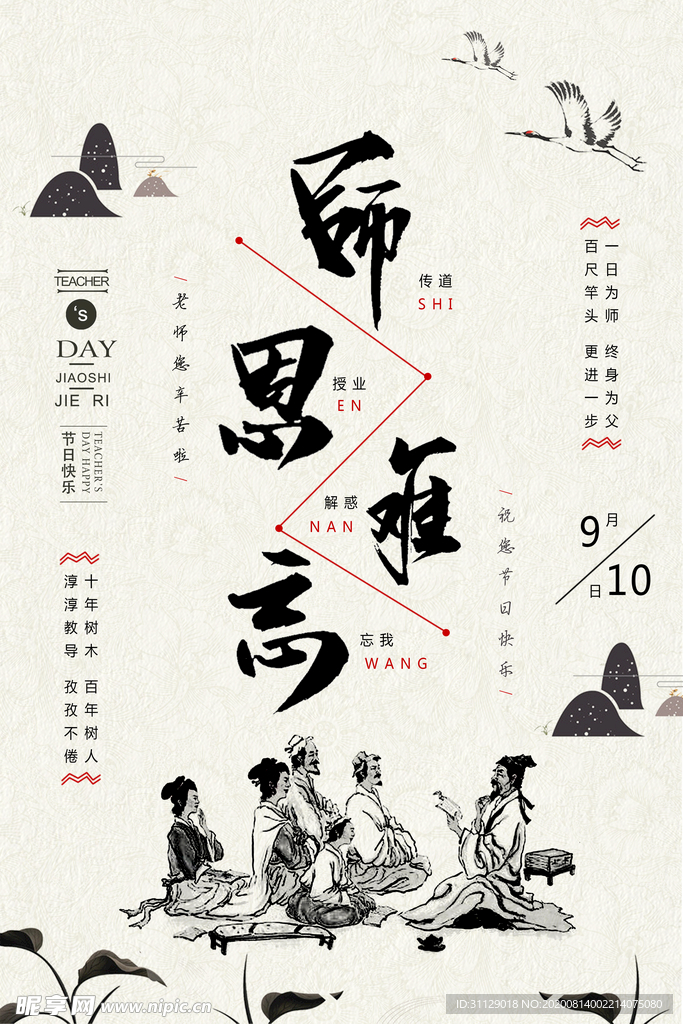 師
恩
难
忘
传道
SHI
授业
EN
解惑
NAN
忘我
WANG
TEACHER
's
DAY
JIAOSHI
JIE RI
节日快乐
TEACHER'S
DAY HAPPY
老师您辛苦啦
一日为师 终身为父
百尺竿头 更进一步
9月
10日
祝您节日快乐
十年树木 百年树人
淳淳教导 孜孜不倦
昵享网 www.nipic.cn
ID:31129018 NO:20200814002214075080